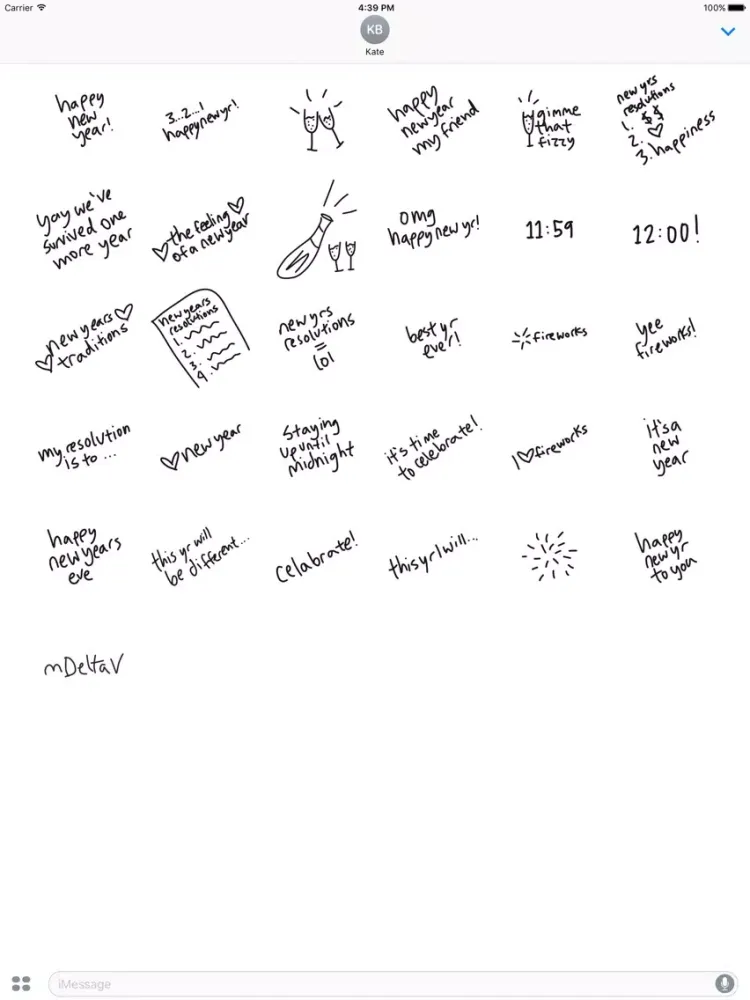 Carrier
4:39 PM
100%
KB
Kate
happy
new
year!
3...2...1
happy new yr!
happy
new year
my friend
gimme
that
fizzy
new yrs
resolutions
1. $$
2. ♡
3. happiness
yay we've
survived one
more year
♡ the feeling ♡
of a new year
omg
happy new yr!
11:59
12:00!
new years ♡
♡ traditions
new years
resolutions
1.
2.
3.
4.
new yrs
resolutions
=
lol
best yr
ever!
fireworks
yee
fireworks!
my resolution
is to ...
♡ new year
staying
up until
midnight
it's time
to celebrate!
I ♡ fireworks
it's a
new
year
happy
new years
eve
this yr will
be different...
celabrate!
this yr I will...
happy
new yr
to you
mDeltaV
iMessage